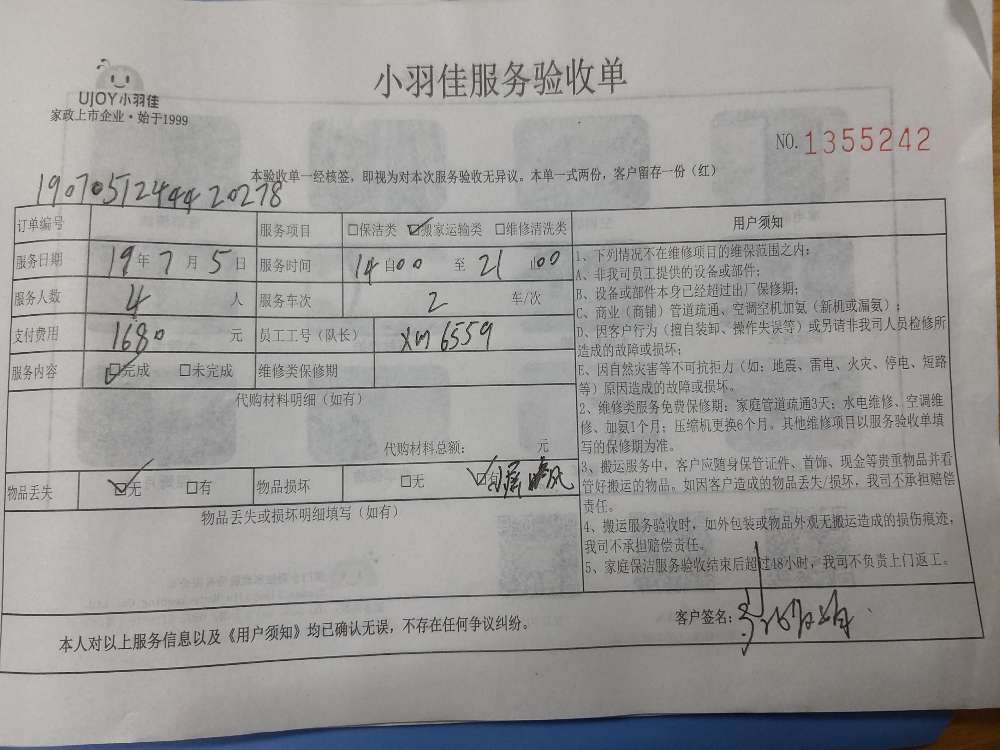 UJOY小羽佳
家政上市企业·始于1999
小羽佳服务验收单
NO. 1355242
本验收单一经核签，即视为对本次服务验收无异议。本单一式两份，客户留存一份（红）
1907051244420278
订单编号 服务项目 □保洁类 ☑搬家运输类 □维修清洗类
服务日期 19年7月5日 服务时间 14:00 至 21:00
服务人数 4 人 服务车次 2 车/次
支付费用 1680 元 员工工号（队长） XM6559
服务内容 ☑完成 □未完成 维修类保修期
代购材料明细（如有）
代购材料总额： 元
物品丢失 ☑无 □有 物品损坏 □无 ☑有
物品丢失或损坏明细填写（如有）
用户须知
1、下列情况不在维修项目的维保范围之内：
A、非我司员工提供的设备或部件；
B、设备或部件本身已经超过出厂保修期；
C、商业（商铺）管道疏通、空调空机加氨（新机或漏氨）；
D、因客户行为（擅自装卸、操作失误等）或另请非我司人员检修所
造成的故障或损坏；
E、因自然灾害等不可抗拒力（如：地震、雷电、火灾、停电、短路
等）原因造成的故障或损坏。
2、维修类服务免费保修期：家庭管道疏通3天；水电维修、空调维
修、加氨1个月；压缩机更换6个月。其他维修项目以服务验收单填
写的保修期为准。
3、搬运服务中，客户应随身保管证件、首饰、现金等贵重物品并看
管好搬运的物品。如因客户造成的物品丢失/损坏，我司不承担赔偿
责任。
4、搬运服务验收时，如外包装或物品外观无搬运造成的损伤痕迹，
我司不承担赔偿责任。
5、家庭保洁服务验收结束后超过48小时，我司不负责上门返工。
本人对以上服务信息以及《用户须知》均已确认无误，不存在任何争议纠纷。
客户签名：